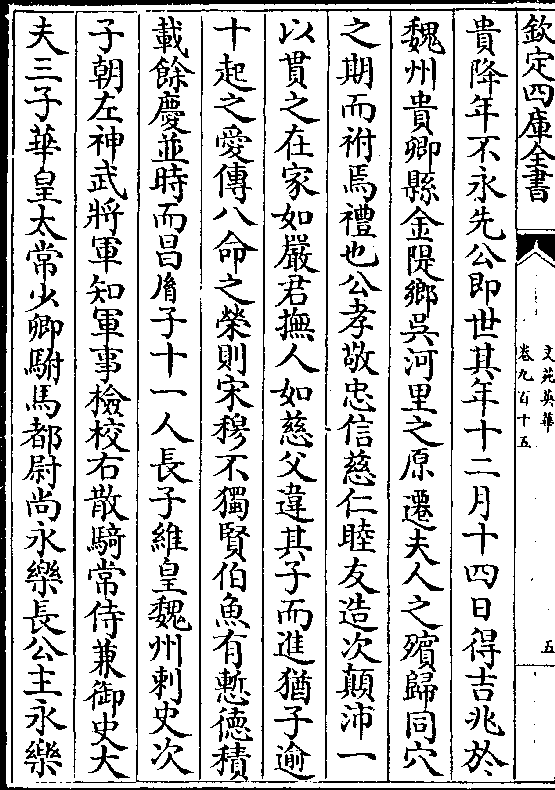 欽定四庫全書
文苑英華
卷九百十五
五
貴降年不永先公即世其年十二月十四日得吉兆於
魏州貴鄉縣金隄鄉吳河里之原遷夫人之殯歸同穴
之期而祔焉禮也公孝敬忠信慈仁睦友造次顛沛一
以貫之在家如嚴君撫人如慈父違其子而進猶子逾
十起之愛傳八命之榮則宋穆不獨賢伯魚有慙德積
載餘慶並時而昌胤子十一人長子維皇魏州刺史次
子朝左神武將軍知軍事檢校右散騎常侍兼御史大
夫三子華皇太常少卿駙馬都尉尚永樂長公主永樂